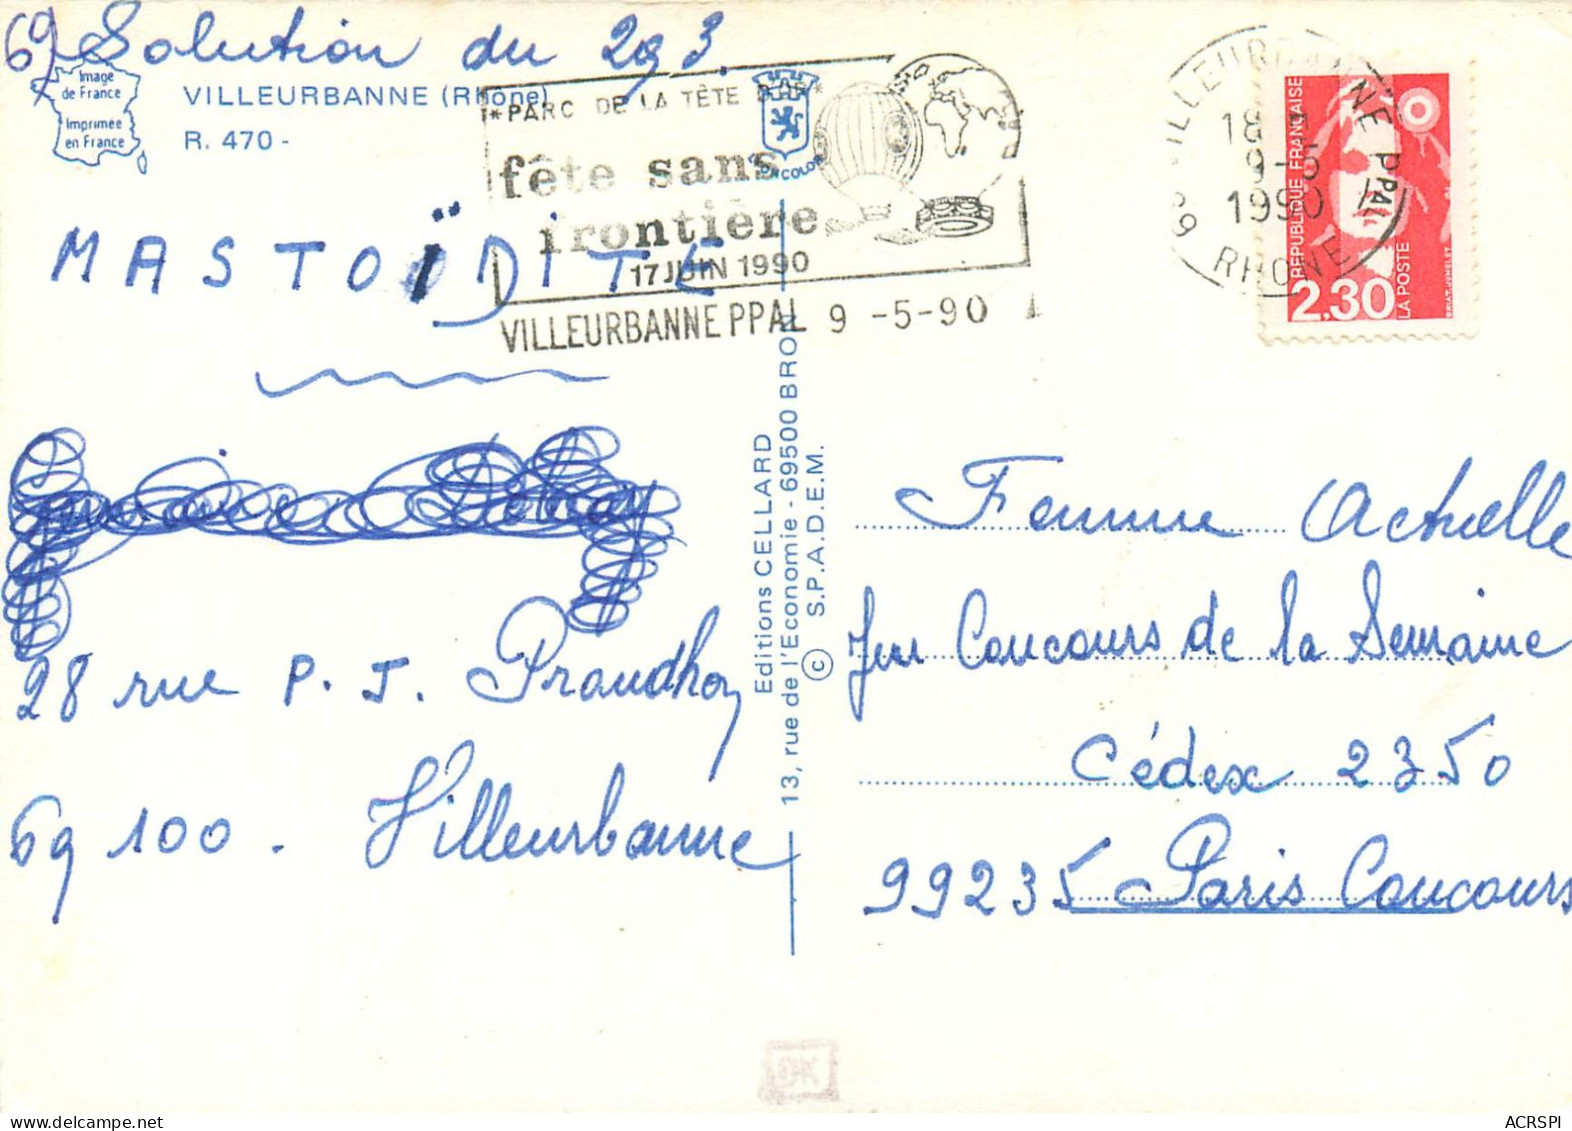 69 Solution du 293.
Image
de France
Imprimée
en France
VILLEURBANNE (Rhône)
R. 470 -
*PARC DE LA TÊTE D'OR*
fête sans
frontière
17 JUIN 1990
VILLEURBANNE PPAL 9 -5-90
VILLEURBANNE PPAL
18 H
9-5
1990
69 RHONE
RÉPUBLIQUE FRANÇAISE
2,30
LA POSTE
BRIAT-JUMELET
MASTOÏDITE
28 rue P. J. Proudhon
69 100 - Villeurbanne
Editions CELLARD
13, rue de l'Economie - 69500 BRON
© S.P.A.D.E.M.
Femme Actuelle
Jeu Concours de la Semaine
Cédex 2350
99235 Paris Concours
DK
ACRSPI